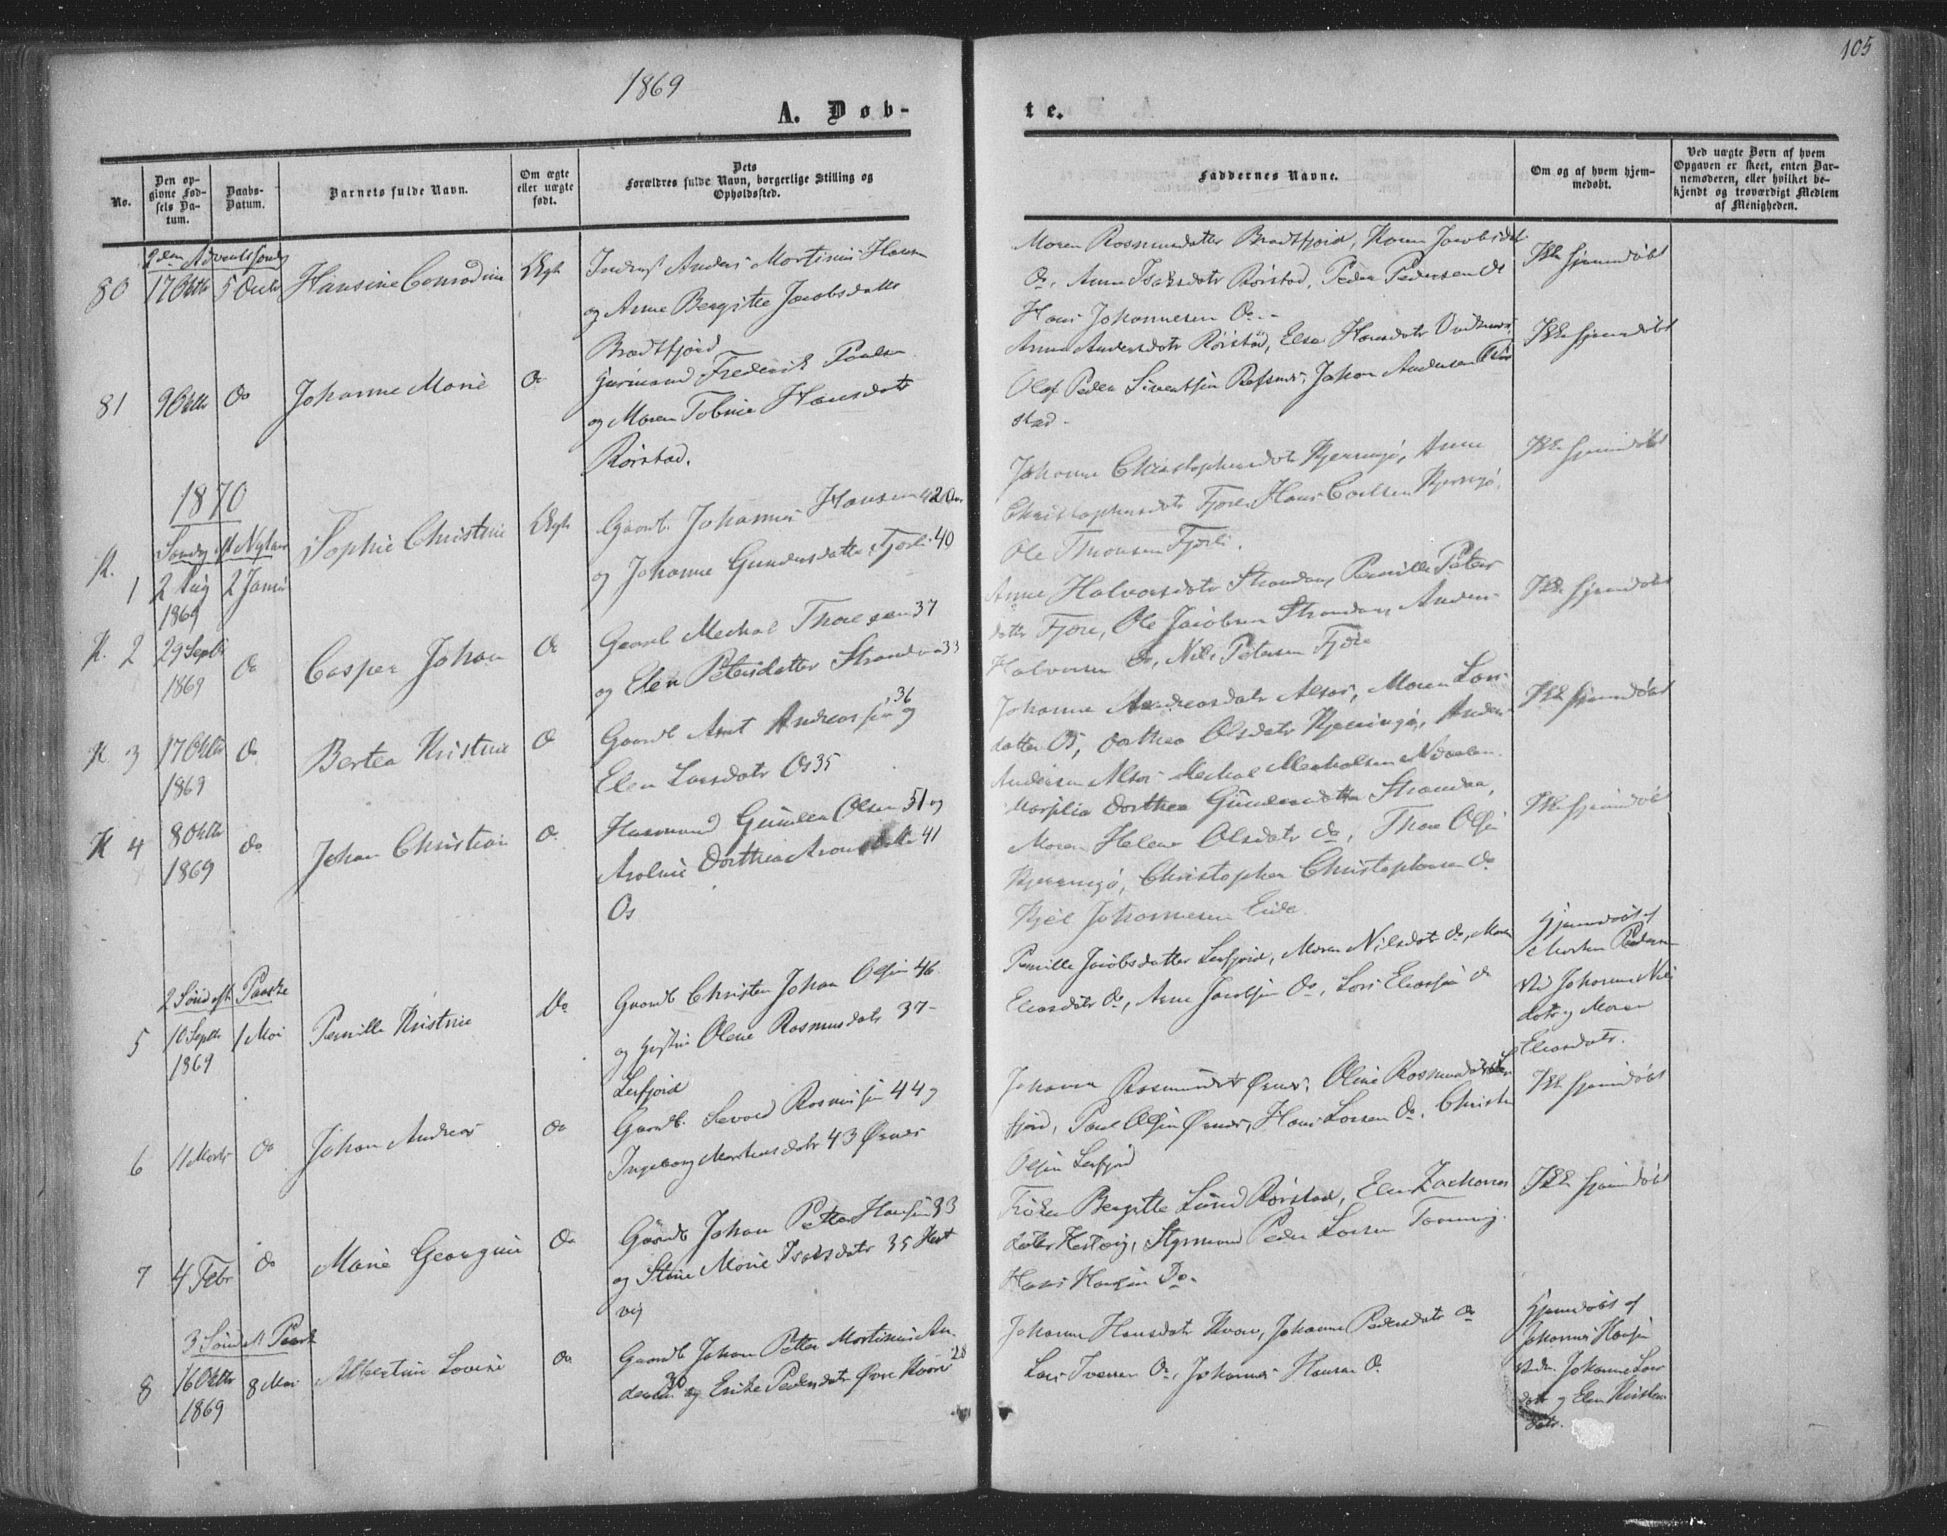 105
1869
A. Døb-
te.
No.
Den op-
givne Fød-
sels Da-
tum.
Daabs-
Datum.
Barnets fulde Navn.
Om ægte
eller uægte
født.
Dets
Forældres fulde Navn, borgerlige Stilling og
Opholdssted.
Faddernes Navne.
Om og af hvem hjem-
medøbt.
Ved uægte Børn af hvem
Opgaven er skeet, enten Bar-
nemøderen, eller hvilket be-
kjendt og troværdigt Medlem
af Menigheden.
2den Adventssøndg
80 17 Oktb 5 Decb Hansine Conradine Ægte Anders Mortinus Hansen
og Anne Bergitte Jacobsdatter
Bradtfjord
Maren Rasmusdatter Bradtfjord, Karen Jacobsdat
Do, Anne Isaksdatr Rørstad, Peder Pedersen Do
Hans Johannesen Do.
Ikke hjemmdøbt
81 9 Oktb Do Johanne Marie Do Frederik Paulsen
og Maren Tobine Hansdatr
Rørstad.
Anne Andersdatr Rørstad, Else Hansdatr
Olaf Peder Sivertsen Røsnes, Johan Andersen Rør
stad.
Ikke hjemmdøbt
1870
Søndg eft Nytaar
K. 1 2 Aug 1869 2 Januar Sophie Christine Ægte Gaardb. Johannes Hansen 42 Aar
og Johanne Gundersdatter Fjærli 40
Johanne Christophersdatr Kjerringø, Anne
Christophersdatr Fjære, Hans Carlsen Kjerringø,
Ole Thomsen Fjærli.
Ikke hjemmdøbt
K. 2 29 Septb 1869 Do Casper Johan Do Gaardb Mechal Thoresen 37
og Elen Petersdatter Strandaa 33
Anne Halvorsdatr Strandaa, Pernille Peters
datter Fjære, Ole Jacobsen Strandaa, Anders
Halvorsen Do, Nils Petersen Fjære
Ikke hjemmdøbt
K 3 17 Oktb 1869 Do Bertea Kristine Do Gaardb Arnt Andreassen 36 og
Elen Larsdatr Os 35
Johanna Andreasdatr Alsos, Maren Lars
datter Os, Dorthea Olsdatr Kjerringø, Anders
Andersen Alsos Mechal Mechalsen
Ikke hjemmdøbt
K 4 8 Oktb 1869 do Johan Christian Do Husmand Gunder Olsen 51 og
Aroline Dorthea Aronsdatter 41
Os
Dorthea Gundersdatter Strandaa,
Maren Helene Olsdatr do, Thore Olsen
Kjerringø, Christopher Christophersen do
Kjel Johannesen Eide
Ikke hjemmdøbt
2 Sønd eft Paaske
5 10 Septb 1869 1 Mai Pernille Kristine Do Gaardb Christen Johan Olsen 46
og Hustru Olene Rasmusdatr 37
Leifjord
Pernille Jacobsdatter Leifjord, Maren Nilsdatr do, Maren
Eliasdatr do, Arne Jacobsen Do, Lars Eliassen do
Hjemmdøbt af
Morten Pedersen
ved Johanna Nils
datr og Maren
Eliasdatr.
6 11 Marts Do Johan Andreas Do Gaardb. Sevard Rasmussen 44 og
Ingeborg Martinusdatr 43 Ørnes
Johanna Rasmusdatr Ørnes, Oline Rasmusdatr Lei
fjord, Paul Olsen Ørnes, Hans Larsen Do, Christen
Olsen Leifjord
Ikke hjemmdøbt
7 4 Febr Do Marie Georgine Do Gaardb Johan Petter Hansen 33
og Stine Marie Isaksdatr 35 Hest
vig
Frøken Bergitte Lund Rørstad, Elen Zacharias
datter Hestvig, Styrmand Peder Larsen Tarnvig,
Hans Hansen Do.
Ikke hjemmdøbt
3 Sønd eft Paaske
8 16 Oktb 1869 8 Mai Albertine Lovise Do Gaardb Johan Petter Mortinus An-
dersen 30 og Erike Pedersdatr Øvre Kvarv 28
Johanna Hansdatr Kvarv, Johanne Pedersdatr do
Lars Iversen Do, Johannes Hansen Do
Hjemmdøbt af
Johannes Hansen
ved Johanne Lars
datr og Elen Kristen
datr.